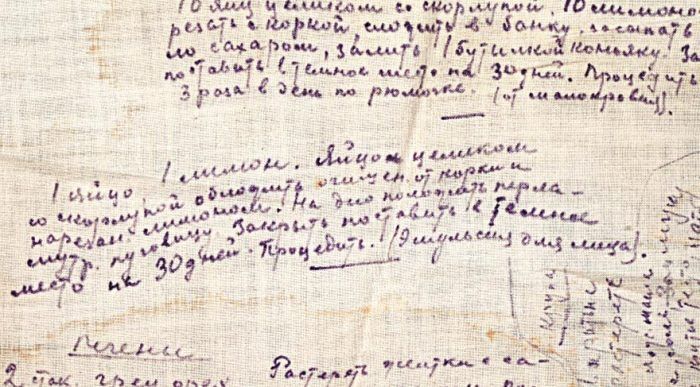 10 яиц целиком со скорлупой. 10 лимоно
резать с коркой, сложить в банку. засыпать
ло сахаром, залить 1 бутилкой коньяку. За
поставить в темное место на 30 дней. Процедить
3 раза в день по рюмочке. (от малокровия).
1 яйцо, 1 лимон. Яйцом целиком
со скорлупой обложить очищен. от корки и
нарезан. лимоном. На дно положить перла-
мутр. пуговицу. Закрыть поставить в темное
место на 30 дней. Процедить. (Эмульсия для лица).
Печенье
2 стак. грец орех. Растереть желтки с са-